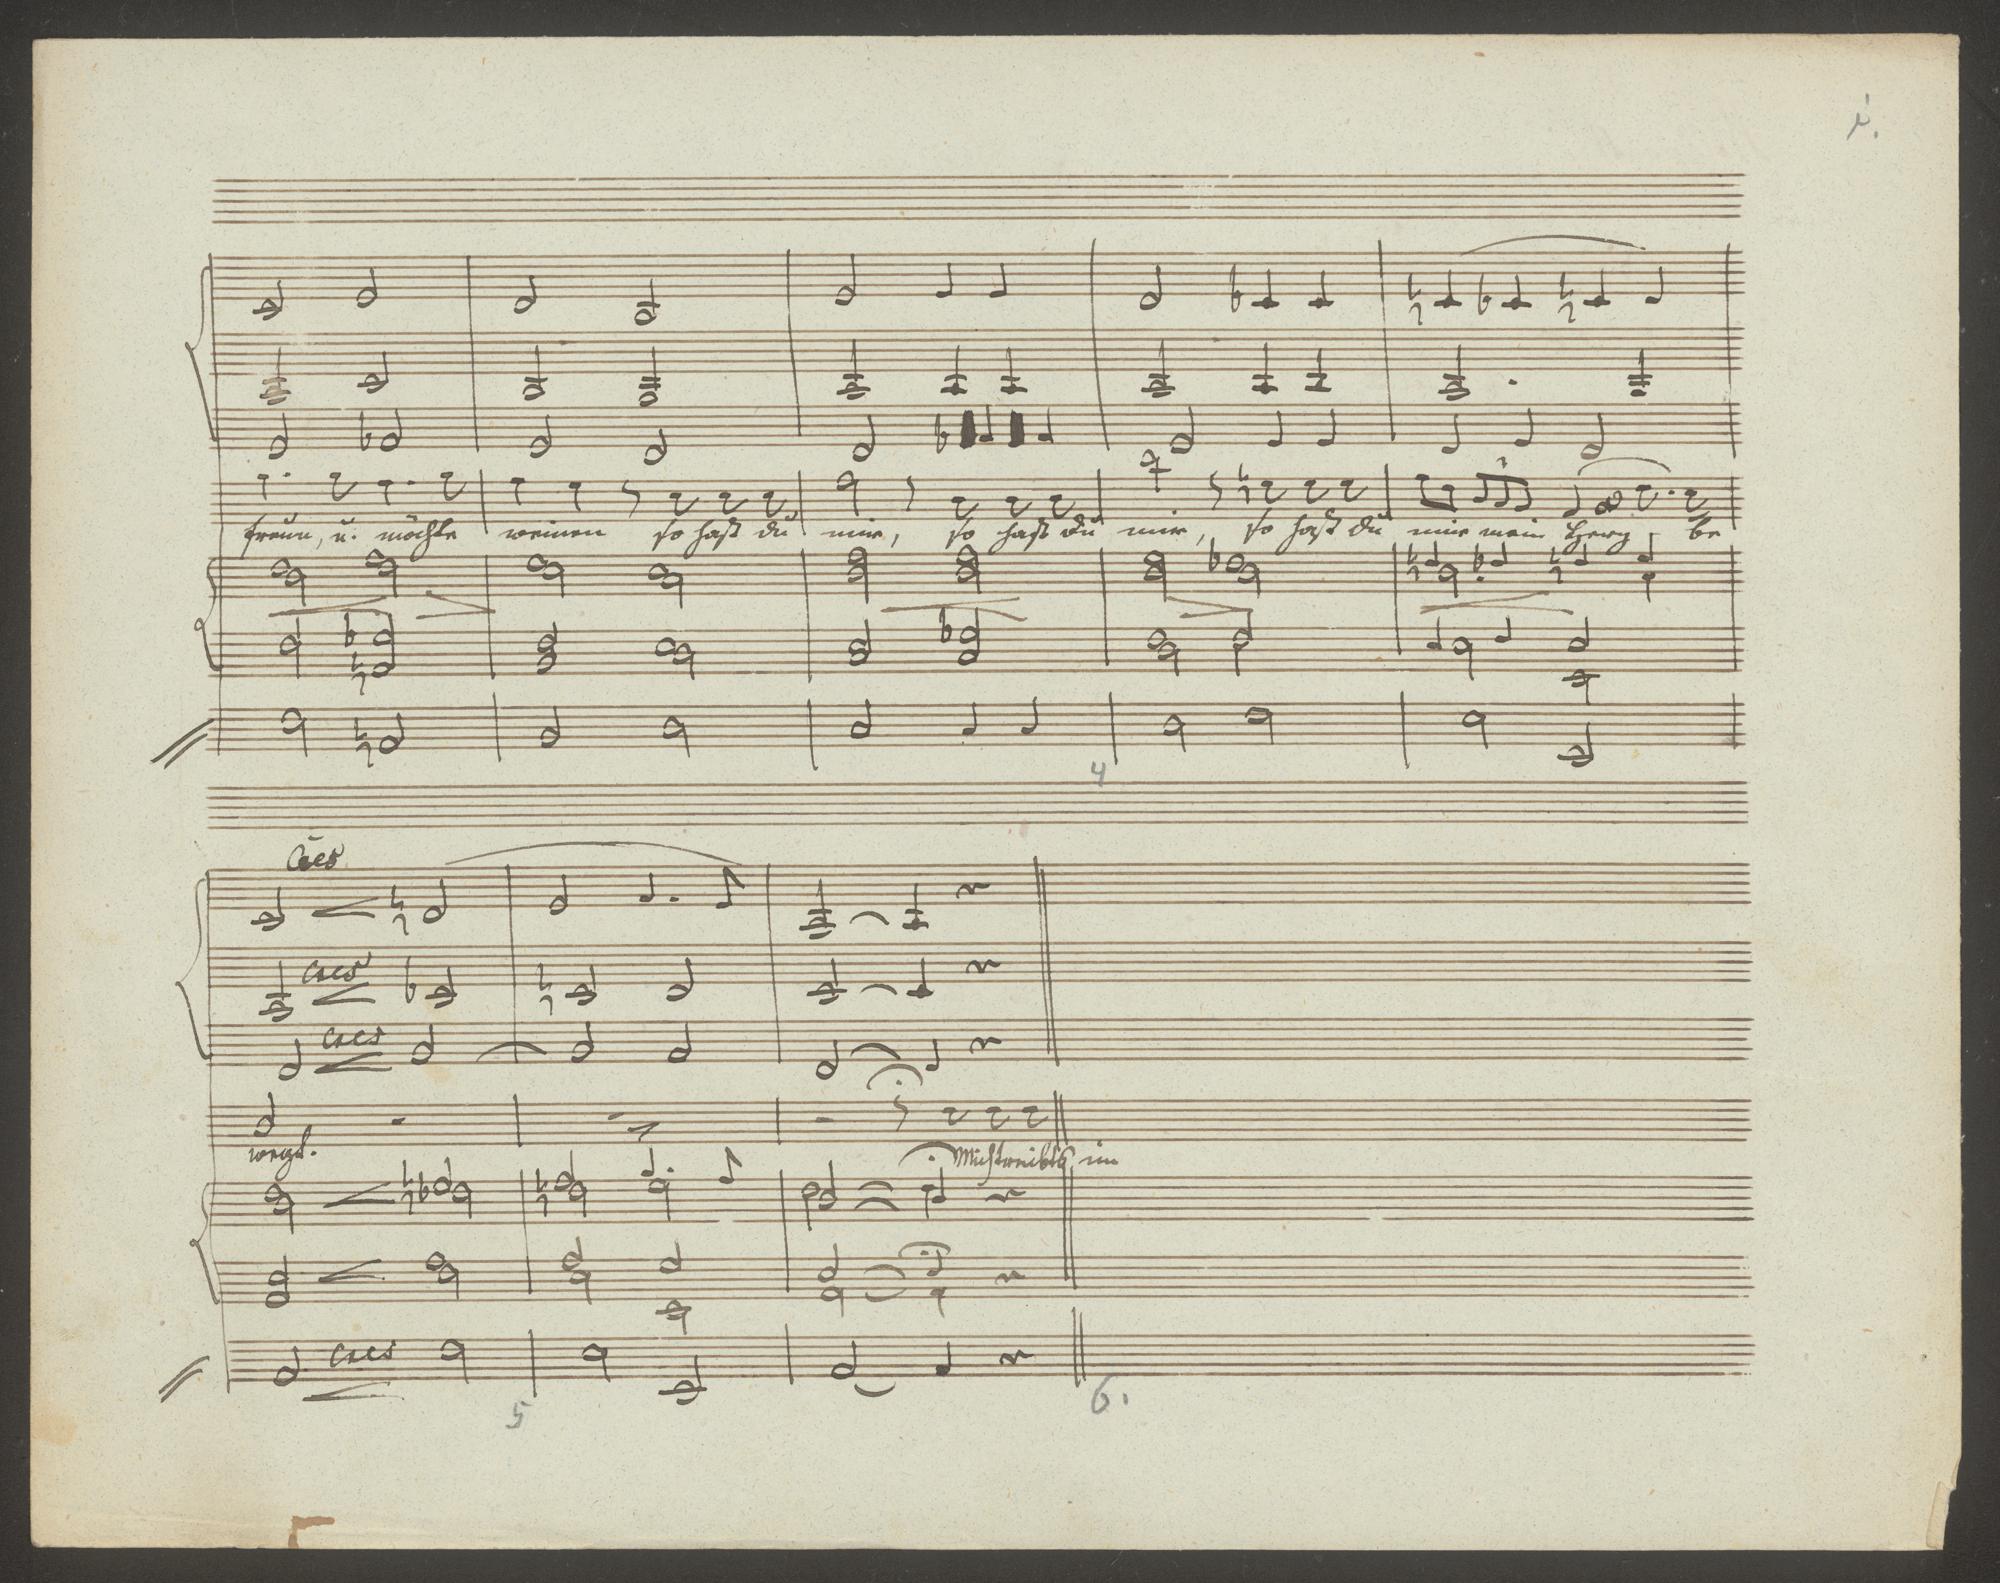 freun, u. möchte weinen so hast du mir, so hast du mir, so hast du mir mein Herz be
4
Cres
cres
cres
wegt.
Mich treibts im
cres
5
6.